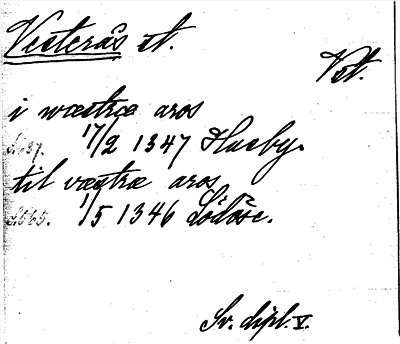 Vesterås st.
Vst.
i wæstræ aros
17/2 1347 Husby.
til væstræ aros
1/5 1346 Lödöse.
Sv. dipl. V.